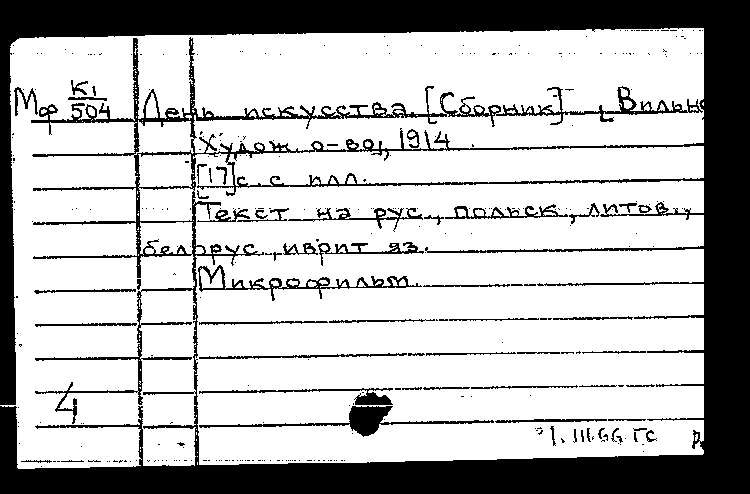 Мф К1/504 День искусства. [Сборник] [Вильно
Худож. о-во], 1914.
[17]с. с илл.
Текст на рус., польск., литов.,
белорус., иврит яз.
Микрофильм.
4
1.III.66 ГС